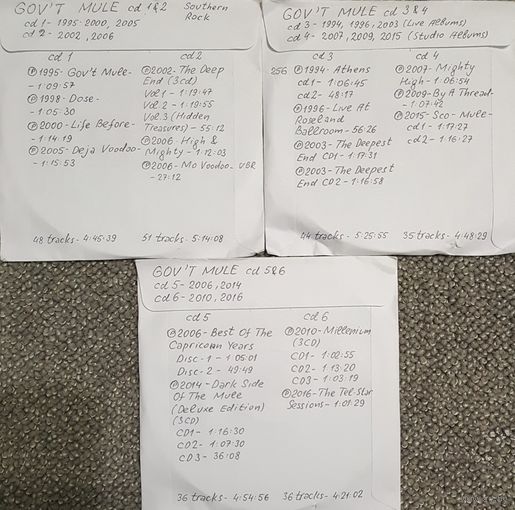 GOV'T MULE cd 1&2 Southern Rock
cd 1 - 1995-2000, 2005
cd 2 - 2002, 2006
cd 1
℗1995- Gov't Mule -
- 1:09:57
℗1998 - Dose -
- 1:05:30
℗2000 - Life Before -
- 1:14:19
℗2005 - Deja Voodoo -
- 1:15:53
48 tracks - 4:45:39
cd 2
℗2002- The Deep
End (3cd)
Vol.1 - 1:19:47
Vol. 2 - 1:19:55
Vol. 3 (Hidden
Treasures) - 55:12
℗2006 - High &
Mighty - 1:12:03
℗2006 - Mo Voodoo - VBR
- 27:12
51 tracks - 5:14:08
GOV'T MULE cd 3 & 4
cd 3 - 1994, 1996, 2003 (Live Albums)
cd 4 - 2007, 2009, 2015 (Studio Albums)
cd 3
256 ℗1994- Athens
cd1 - 1:06:45
cd2 - 48:17
℗1996 - Live At
Roseland
Ballroom - 56:26
℗2003 - The Deepest
End CD1 - 1:17:31
℗2003 - The Deepest
End CD2 - 1:16:58
44 tracks - 5:25:55
cd 4
℗2007 - Mighty
High - 1:06:54
℗2009 - By A Thread -
- 1:07:42
℗2015 - Sco-Mule -
cd1 - 1:17:27
cd2 - 1:16:27
35 tracks - 4:48:29
GOV'T MULE cd 5&6
cd 5 - 2006, 2014
cd 6 - 2010, 2016
cd 5
℗2006 - Best Of The
Capricorn Years
Disc - 1 - 1:05:01
Disc - 2 - 49:49
℗2014 - Dark Side
Of The Mule
(Deluxe Edition)
(3CD)
CD1 - 1:16:30
CD2 - 1:07:30
CD3 - 36:08
36 tracks - 4:54:56
cd 6
℗2010 - Millenium
(3CD)
CD1 - 1:02:55
CD2 - 1:13:20
CD3 - 1:03:19
℗2016 - The Tel-Star
Sessions - 1:01:29
36 tracks - 4:21:02